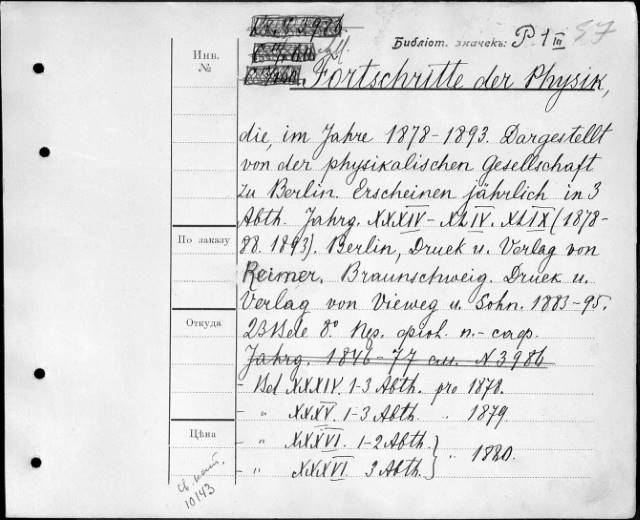 Библіот. значекъ: P 1 III 57
Инв.
№
Fortschritte der Physik,
die, im Jahre 1878-1893. Dargestellt
von der physikalischen Gesellschaft
zu Berlin. Erscheinen jährlich in 3
Abth. Jahrg. XXXIV-XLIV. XLIX (1878-
По заказу
88. 1893). Berlin, Druck u. Verlag von
Reimer. Braunschweig. Druck u.
Verlag von Vieweg u. Sohn. 1883-95.
Откуда
23 Bde 8°
Jahrg. 1846-77 см. N 3986
- Bd XXXIV. 1-3 Abth. pro 1878.
- " XXXV. 1-3 Abth. " 1879.
Цѣна
- " XXXVI. 1-2 Abth. } " 1880.
- " XXXVI 3 Abth. }
10143